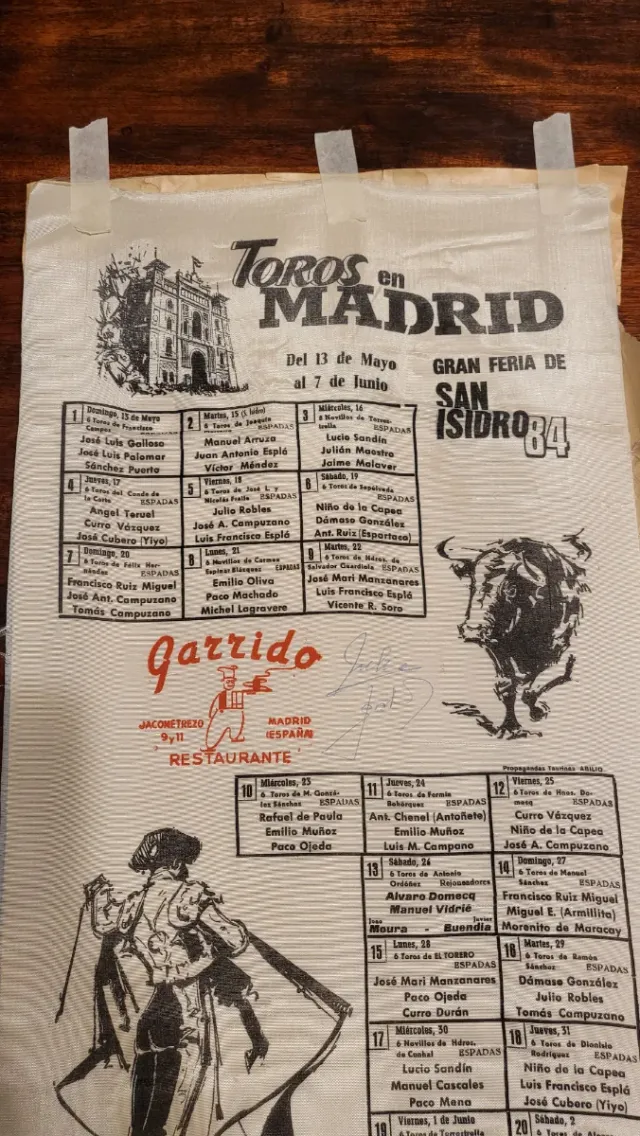 TOROS en
MADRID
Del 13 de Mayo
al 7 de Junio
GRAN FERIA DE
SAN
ISIDRO 84
1 Domingo, 13 de Mayo
6 Toros de Francisco
Campos ESPADAS
José Luis Galloso
José Luis Palomar
Sánchez Puerto
2 Martes, 15
6 Toros de Joaquín
ESPADAS
Manuel Arruza
Juan Antonio Esplá
Víctor Méndez
3 Miércoles, 16
6 Novillos de Torres-
trella ESPADAS
Lucio Sandín
Julián Maestro
Jaime Malaver
4 Jueves, 17
6 Toros del Conde de
la Corte ESPADAS
Angel Teruel
Curro Vázquez
José Cubero (Yiyo)
5 Viernes, 18
6 Toros de José L. y
Nicolás Fraile ESPADAS
Julio Robles
José A. Campuzano
Luis Francisco Esplá
6 Sábado, 19
6 Toros de Sepúlveda
ESPADAS
Niño de la Capea
Dámaso González
Ant. Ruiz (Espartaco)
7 Domingo, 20
6 Toros de Félix Her-
nández ESPADAS
Francisco Ruiz Miguel
José Ant. Campuzano
Tomás Campuzano
8 Lunes, 21
6 Novillos de Carmen
Espinal Blázquez ESPADAS
Emilio Oliva
Paco Machado
Michel Lagravere
9 Martes, 22
6 Toros de Hdros. de
Salvador Guardiola ESPADAS
José Mari Manzanares
Luis Francisco Esplá
Vicente R. Soro
Garrido
JACOMETREZO
9 y 11
MADRID
(ESPAÑA)
RESTAURANTE
Propagandas Taurinas ABILIO
10 Miércoles, 23
6 Toros de M. Gonzá-
lez Sánchez ESPADAS
Rafael de Paula
Emilio Muñoz
Paco Ojeda
11 Jueves, 24
6 Toros de Fermín
Bohórquez ESPADAS
Ant. Chenel (Antoñete)
Emilio Muñoz
Luis M. Campano
12 Viernes, 25
6 Toros de Hnos. Do-
mecq ESPADAS
Curro Vázquez
Niño de la Capea
José A. Campuzano
13 Sábado, 26
6 Toros de Antonio
Ordóñez Rejoneadores
Alvaro Domecq
Manuel Vidrié
Joao Javier
Moura - Buendía
14 Domingo, 27
6 Toros de Manuel
Sánchez ESPADAS
Francisco Ruiz Miguel
Miguel E. (Armillita)
Morenito de Maracay
15 Lunes, 28
6 Toros de EL TORERO
ESPADAS
José Mari Manzanares
Paco Ojeda
Curro Durán
16 Martes, 29
6 Toros de Ramón
Sánchez ESPADAS
Dámaso González
Julio Robles
Tomás Campuzano
17 Miércoles, 30
6 Novillos de Hdros.
de Cunhal ESPADAS
Lucio Sandín
Manuel Cascales
Paco Mena
18 Jueves, 31
6 Toros de Dionisio
Rodríguez ESPADAS
Niño de la Capea
Luis Francisco Esplá
José Cubero (Yiyo)
19 Viernes, 1 de Junio
6 Toros de Torrestrella
20 Sábado, 2
6 Toros de